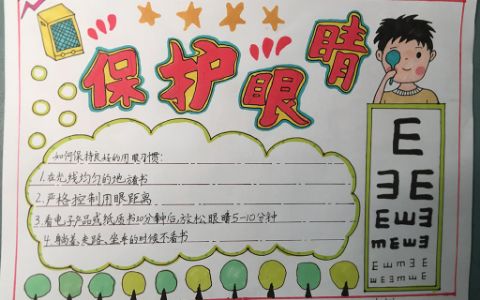 保护眼睛
如何保持良好的用眼习惯:
1.在光线均匀的地放书
2.严格控制用眼距离
3.看电子产品或纸质书30分钟后,放松眼睛5-10分钟
4.躺着、走路、坐车的时候不看书
E
ƎE
EmƎ
mEшƎ